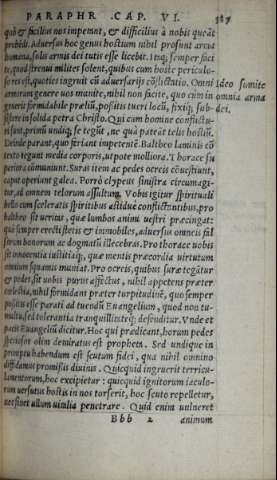 PARAPHR. CAP. VI. 587
quò & facilius nos impetant, & difficilius à nobis queāt
prohiberi. Aduersus hoc genus hostium nihil prosunt arma
humana, solis armis dei tutis esse licebit. Itaq; semper faci
te, quod strenui milites solent, quibus cum hoste periculo-
sa res est, quoties ingruit cū aduersarijs cōflictatio. Omni Ideo sumite
armorum genere uos munite, nihil non facite, quo cum in omnia arma
generis formidabile præliū, possitis tueri locū, fixiq; sub- dei.
sistere in solida petra Christo. Qui eam homine conflictu-
ri sunt, primū undiq; se tegūt, ne quà pateāt telis hostiū.
Deinde parant, quo feriant impetentē. Baltheo laminis cō
texto tegunt media corporis, ut pote molliora. Thorace su
periora cōmuniunt. Suras item ac pedes ocreis cōuestiunt,
caput operiunt galea. Porrò clypeus sinistra circumagi-
tur, ad omnem telorum assultum. Vobis igitur spirituali
bello cum sceleratis spiritibus assiduè conflictantibus, pro
baltheo sit ueritas, quæ lumbos animi uestri præcingat:
quæ semper erecti steris & immobiles, aduersus omneis fal
sorum bonorum ac dogmatū illecebras. Pro thorace uobis
sit innocentia iustitiáq;, quæ mentis præcordia uirtutum
omnium squamis muniat. Pro ocreis, quibus suræ tegūtur
& pedes, sit uobis purus affectus, nihil appetens præter
cœlestia, nihil formidans præter turpitudinē, quo semper
possitis esse parati ad tuendū Euangelium, quod non tu-
multu, sed tolerantia tranquillitateq; defenditur. Vnde et
pacis Euangeliū dicitur. Hoc qui prædicant, horum pedes
speciosos olim demiratus est propheta. Sed undique in
promptu habendum est scutum fidei, qua nihil omnino
diffidamus promissis diuinis. Quicquid ingruerit terricu-
lamentorum, hoc excipietur: quicquid ignitorum iaculo-
rum uersutus hostis in nos torserit, hoc scuto repelletur,
nec sinet ullum uitalia penetrare. Quid enim uulneret
Bbb 2 animum